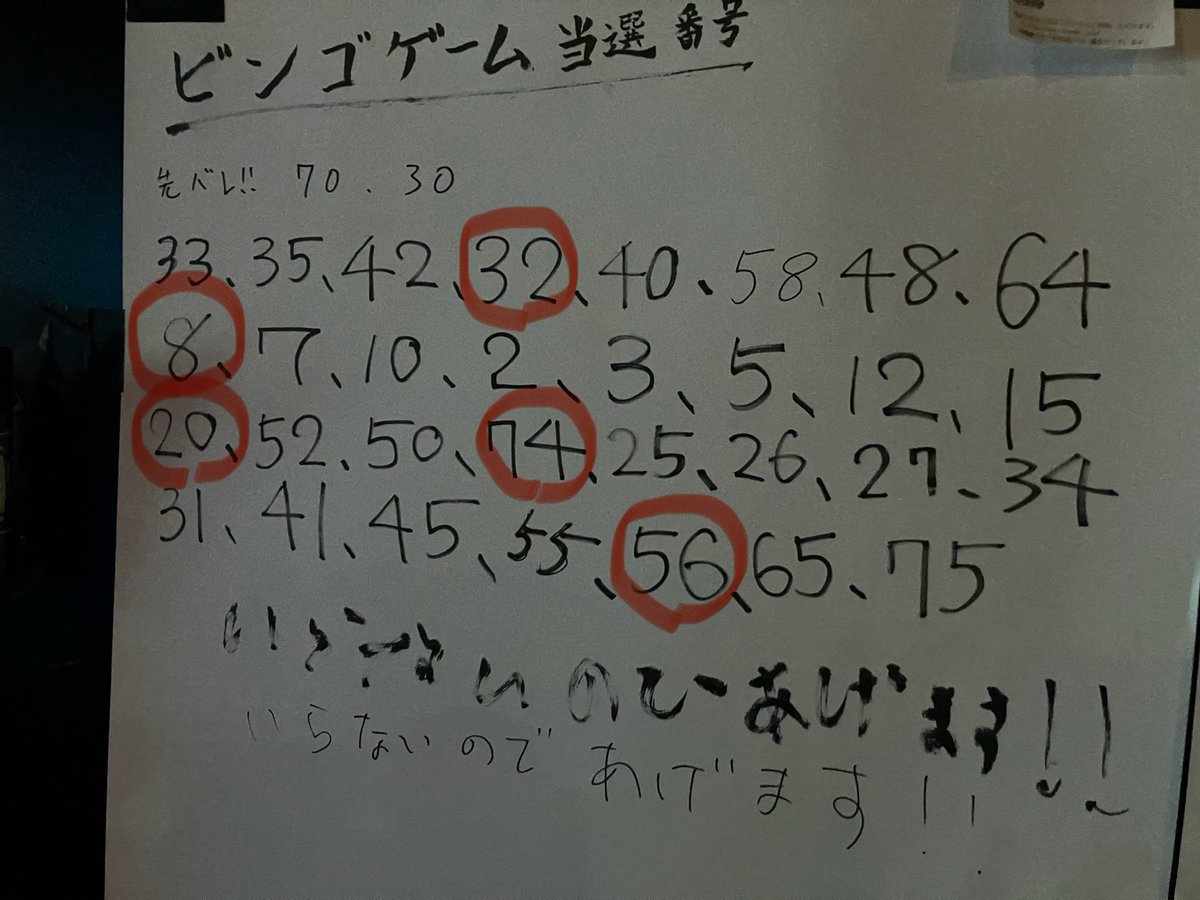 ビンゴゲーム当選番号
先バレ!! 70.30
33、35、42、32、40、58、48、64
8、7、10、2、3、5、12、15
20、52、50、74、25、26、27、34
31、41、45、55、56、65、75
いらないのであげます!!
いらないのであげます!!